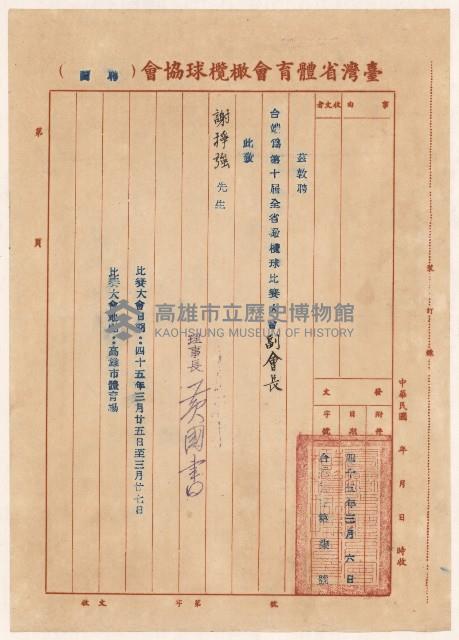 臺灣省體育會橄欖球協會（聘函）
事由
收文者
茲敦聘
台端為第十屆全省橄欖球比賽大會副會長
此致
謝掙強先生
理事長 黃國書
比賽大會日期：四十五年三月廿五日至三月廿七日
比賽大會地點：高雄市體育場
附件
日期
發文字號
四十五年三月六日
第 號
中華民國 年 月 日 時收
裝 訂 線
第 頁
收文 字第 號
高雄市立歷史博物館
KAOHSIUNG MUSEUM OF HISTORY